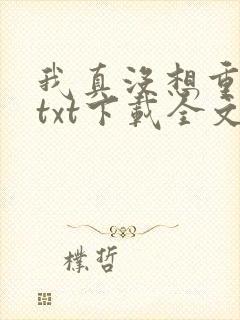 我真没想重
txt下载全文
樸哲